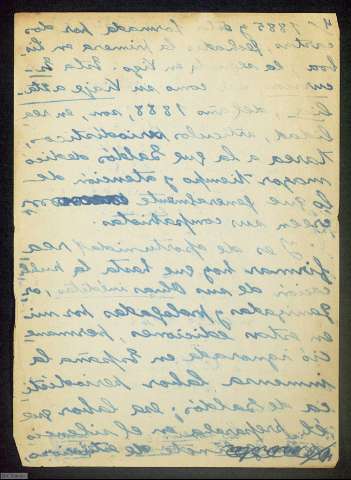 4-1885 y está formada por dos
cartas, fechadas la primera en Lis
boa, la segunda en Vigo. Esta Ex
cursión, como su Viaje a Ita
lia, del año 1888, son, en rea
lidad, artículos periodísticos,
tarea a la que Galdós dedicó
mayor tiempo y atención de
lo que generalmente
creen sus compatriotas.
Y es de oportunidad rea
firmar hoy que hasta la publi
cación de sus Obras inéditas, or
denadas y prologadas por mí
en ostras ediciones, permane
ció ignorada en España la
inmensa labor periodísti
ca de Galdós; esa labor que
él preparaba en el silencio